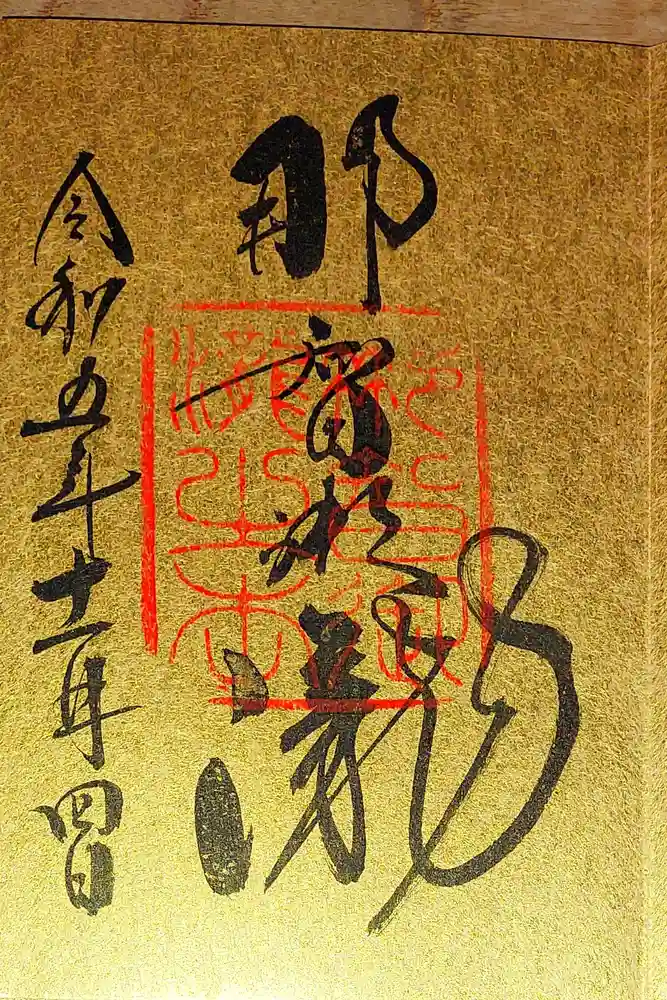 那智御瀧
令和五年十一月四日